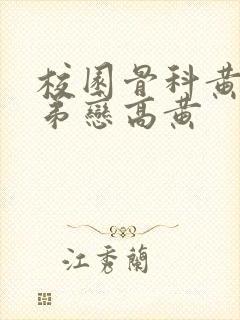 校園骨科黃
弟戀高黄
江秀蘭